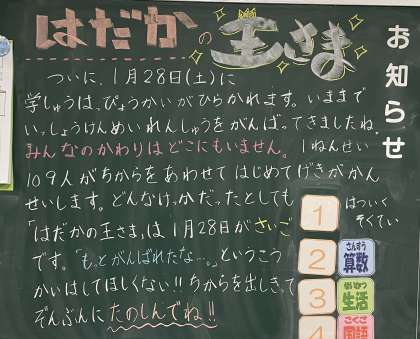 はだかの王さま
お知らせ
ついに、1月28日(土)に
学しゅうはっぴょうかいがひらかれます。いままで
いっしょうけんめいれんしゅうをがんばってきましたね。
みんなのかわりはどこにもいません。1ねんせい
109人がちからをあわせてはじめてげきがかん
せいします。どんなけっかだったとしても
「はだかの王さま」は1月28日がさいご
です。「もっとがんばれたな…。」というこう
かいはしてほしくない!!ちからを出しきって
ぞんぶんにたのしんでね!!
1
はついく
そくてい
2
さんすう
算数
3
せいかつ
生活
4
こくご
国語